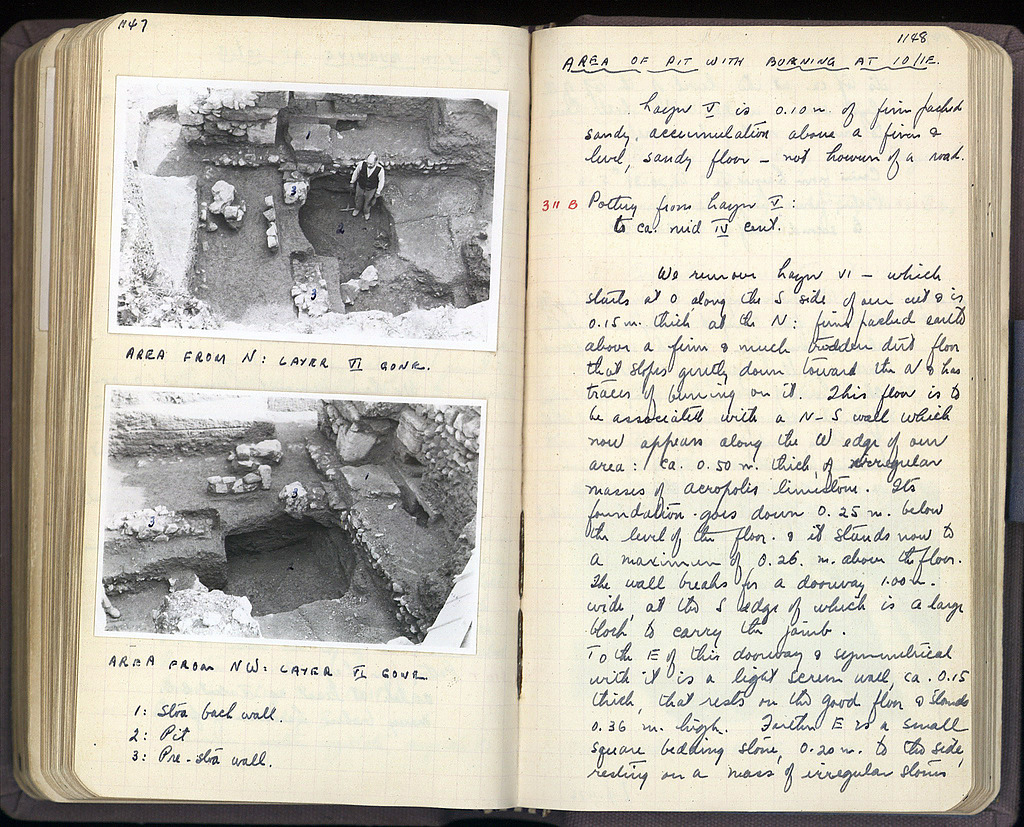 1147
AREA FROM N: LAYER VI GONE.
AREA FROM NW: LAYER VI GONE
1: Stoa back wall.
2: Pit
3: Pre-stoa wall.
1148
AREA OF PIT WITH BURNING AT 10/IE.
Layer V is 0.10 m. of firm packed
sandy accumulation above a firm &
level, sandy floor – not however of a road.
311 B Pottery from Layer V:
to ca. mid IV cent.
We remove Layer VI – which
starts at 0 along the S side of our cut & is
0.15 m. thick at the N: firm packed earth
above a firm & much trodden dirt floor
that slopes gently down toward the N & has
traces of burning on it. This floor is to
be associated with a N-S wall which
now appears along the W edge of our
area: ca. 0.50 m. thick, of irregular
masses of acropolis limestone. Its
foundation goes down 0.25 m. below
the level of the floor & it stands now to
a maximum of 0.26 m. above the floor.
The wall breaks for a doorway 1.00 m.
wide, at the S edge of which is a large
block to carry the jamb.
To the E of this doorway & symmetrical
with it is a light screen wall, ca. 0.15
thick, that rests on the good floor & stands
0.36 m. high. Further E is a small
square bedding stone, 0.20 m. to the side,
resting on a mass of irregular stones
1
2
3
3
1
2
3
3